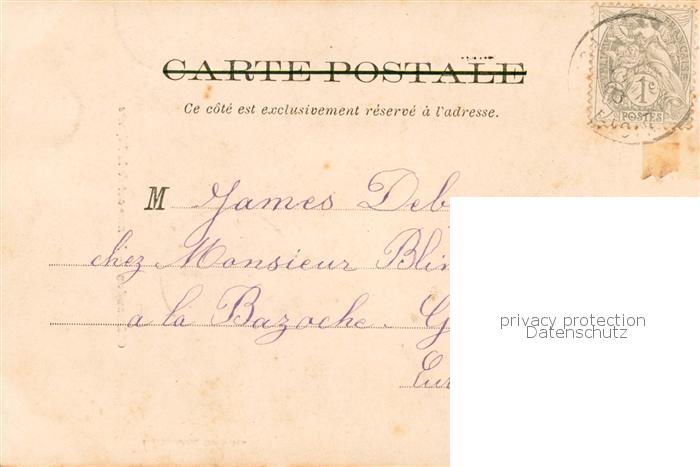 CARTE POSTALE
Ce côté est exclusivement réservé à l'adresse.
1c
POSTES
M James Deb
chez Monsieur Blin
a la Bazoche-G
Eur
privacy protection
Datenschutz